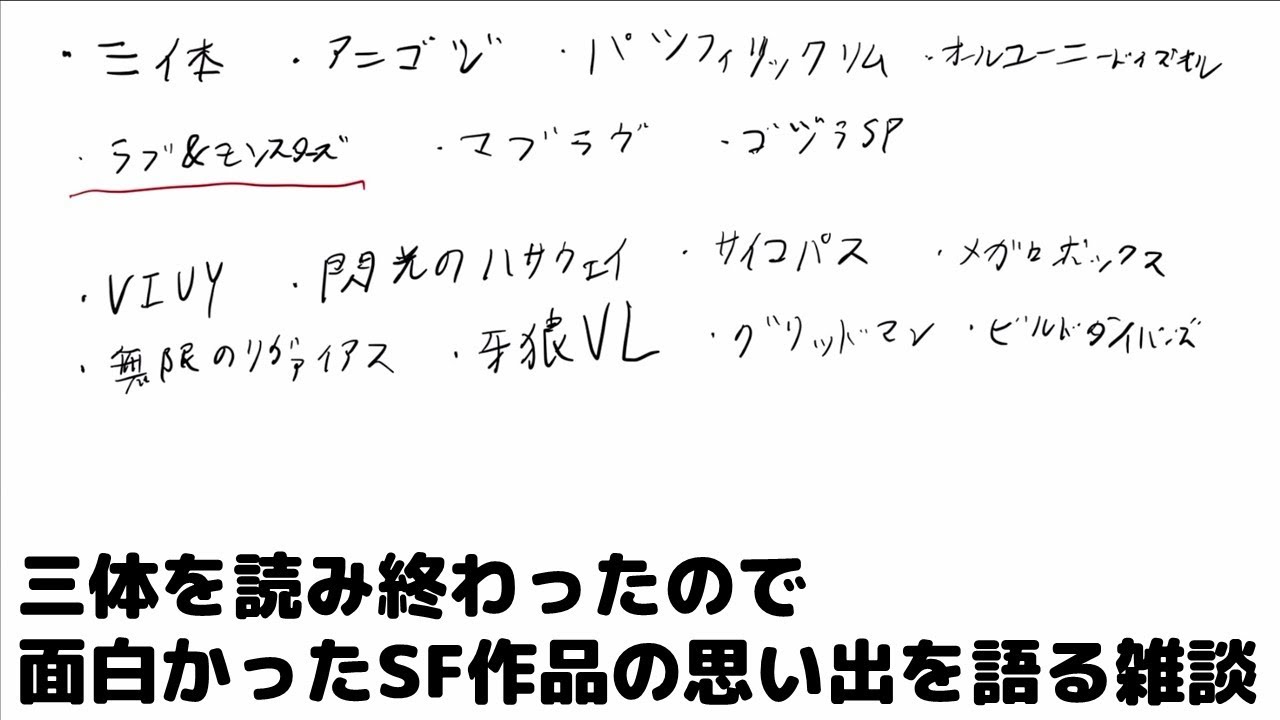 ・三体 ・アニゴジ ・パシフィリックリム ・オールユーニードイズキル
・ラブ&モンスターズ ・マブラヴ ・ゴジラSP
・VIVY ・閃光のハサウェイ ・サイコパス ・メガロボックス
・無限のリヴァイアス ・牙狼VL ・グリッドマン ・ビルドダイバーズ
三体を読み終わったので
面白かったSF作品の思い出を語る雑談